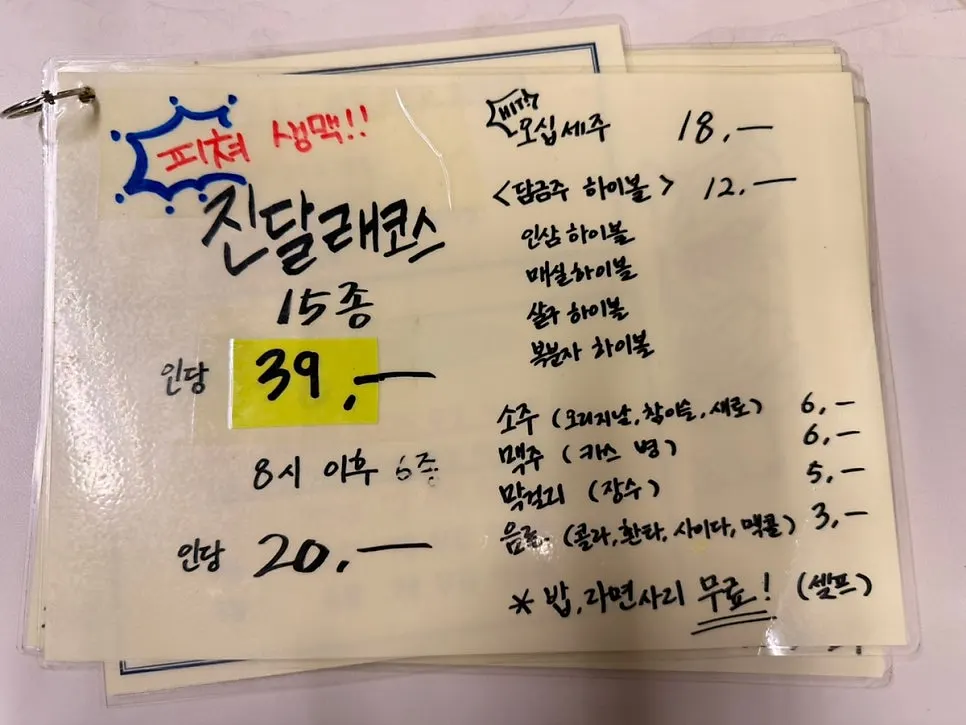 피쳐 생맥!!
진달래코스
15종
인당 39,—
8시 이후 6종
인당 20,—
HIT!
오십세주 18,—
<담금주 하이볼> 12,—
인삼 하이볼
매실하이볼
살구 하이볼
복분자 하이볼
소주 (오리지날, 참이슬, 새로) 6,—
맥주 (카스 병) 6,—
막걸리 (장수) 5,—
음료 (콜라, 환타, 사이다, 맥콜) 3,—
* 밥, 라면사리 무료! (셀프)